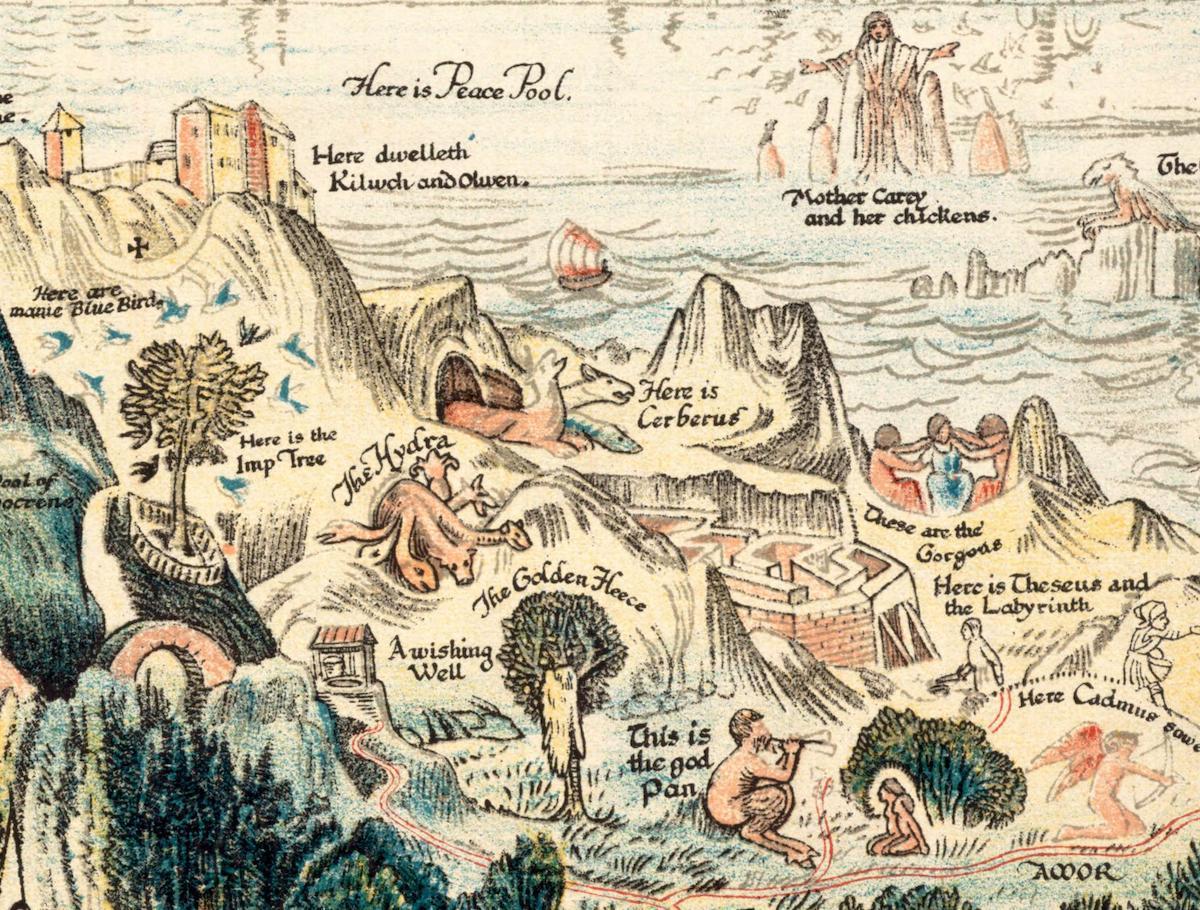 Here is Peace Pool.
Here dwelleth
Kilwch and Olwen.
Mother Carey
and her chickens.
The
Here are
manie Blue Bird
Here is the
Imp Tree
Here is
Cerberus
The Hydra
Pool of
These are the
Gorgons
The Golden Fleece
Here is Theseus and
the Labyrinth
A wishing
Well
Here Cadmus
This is
the god
Pan
AMOR